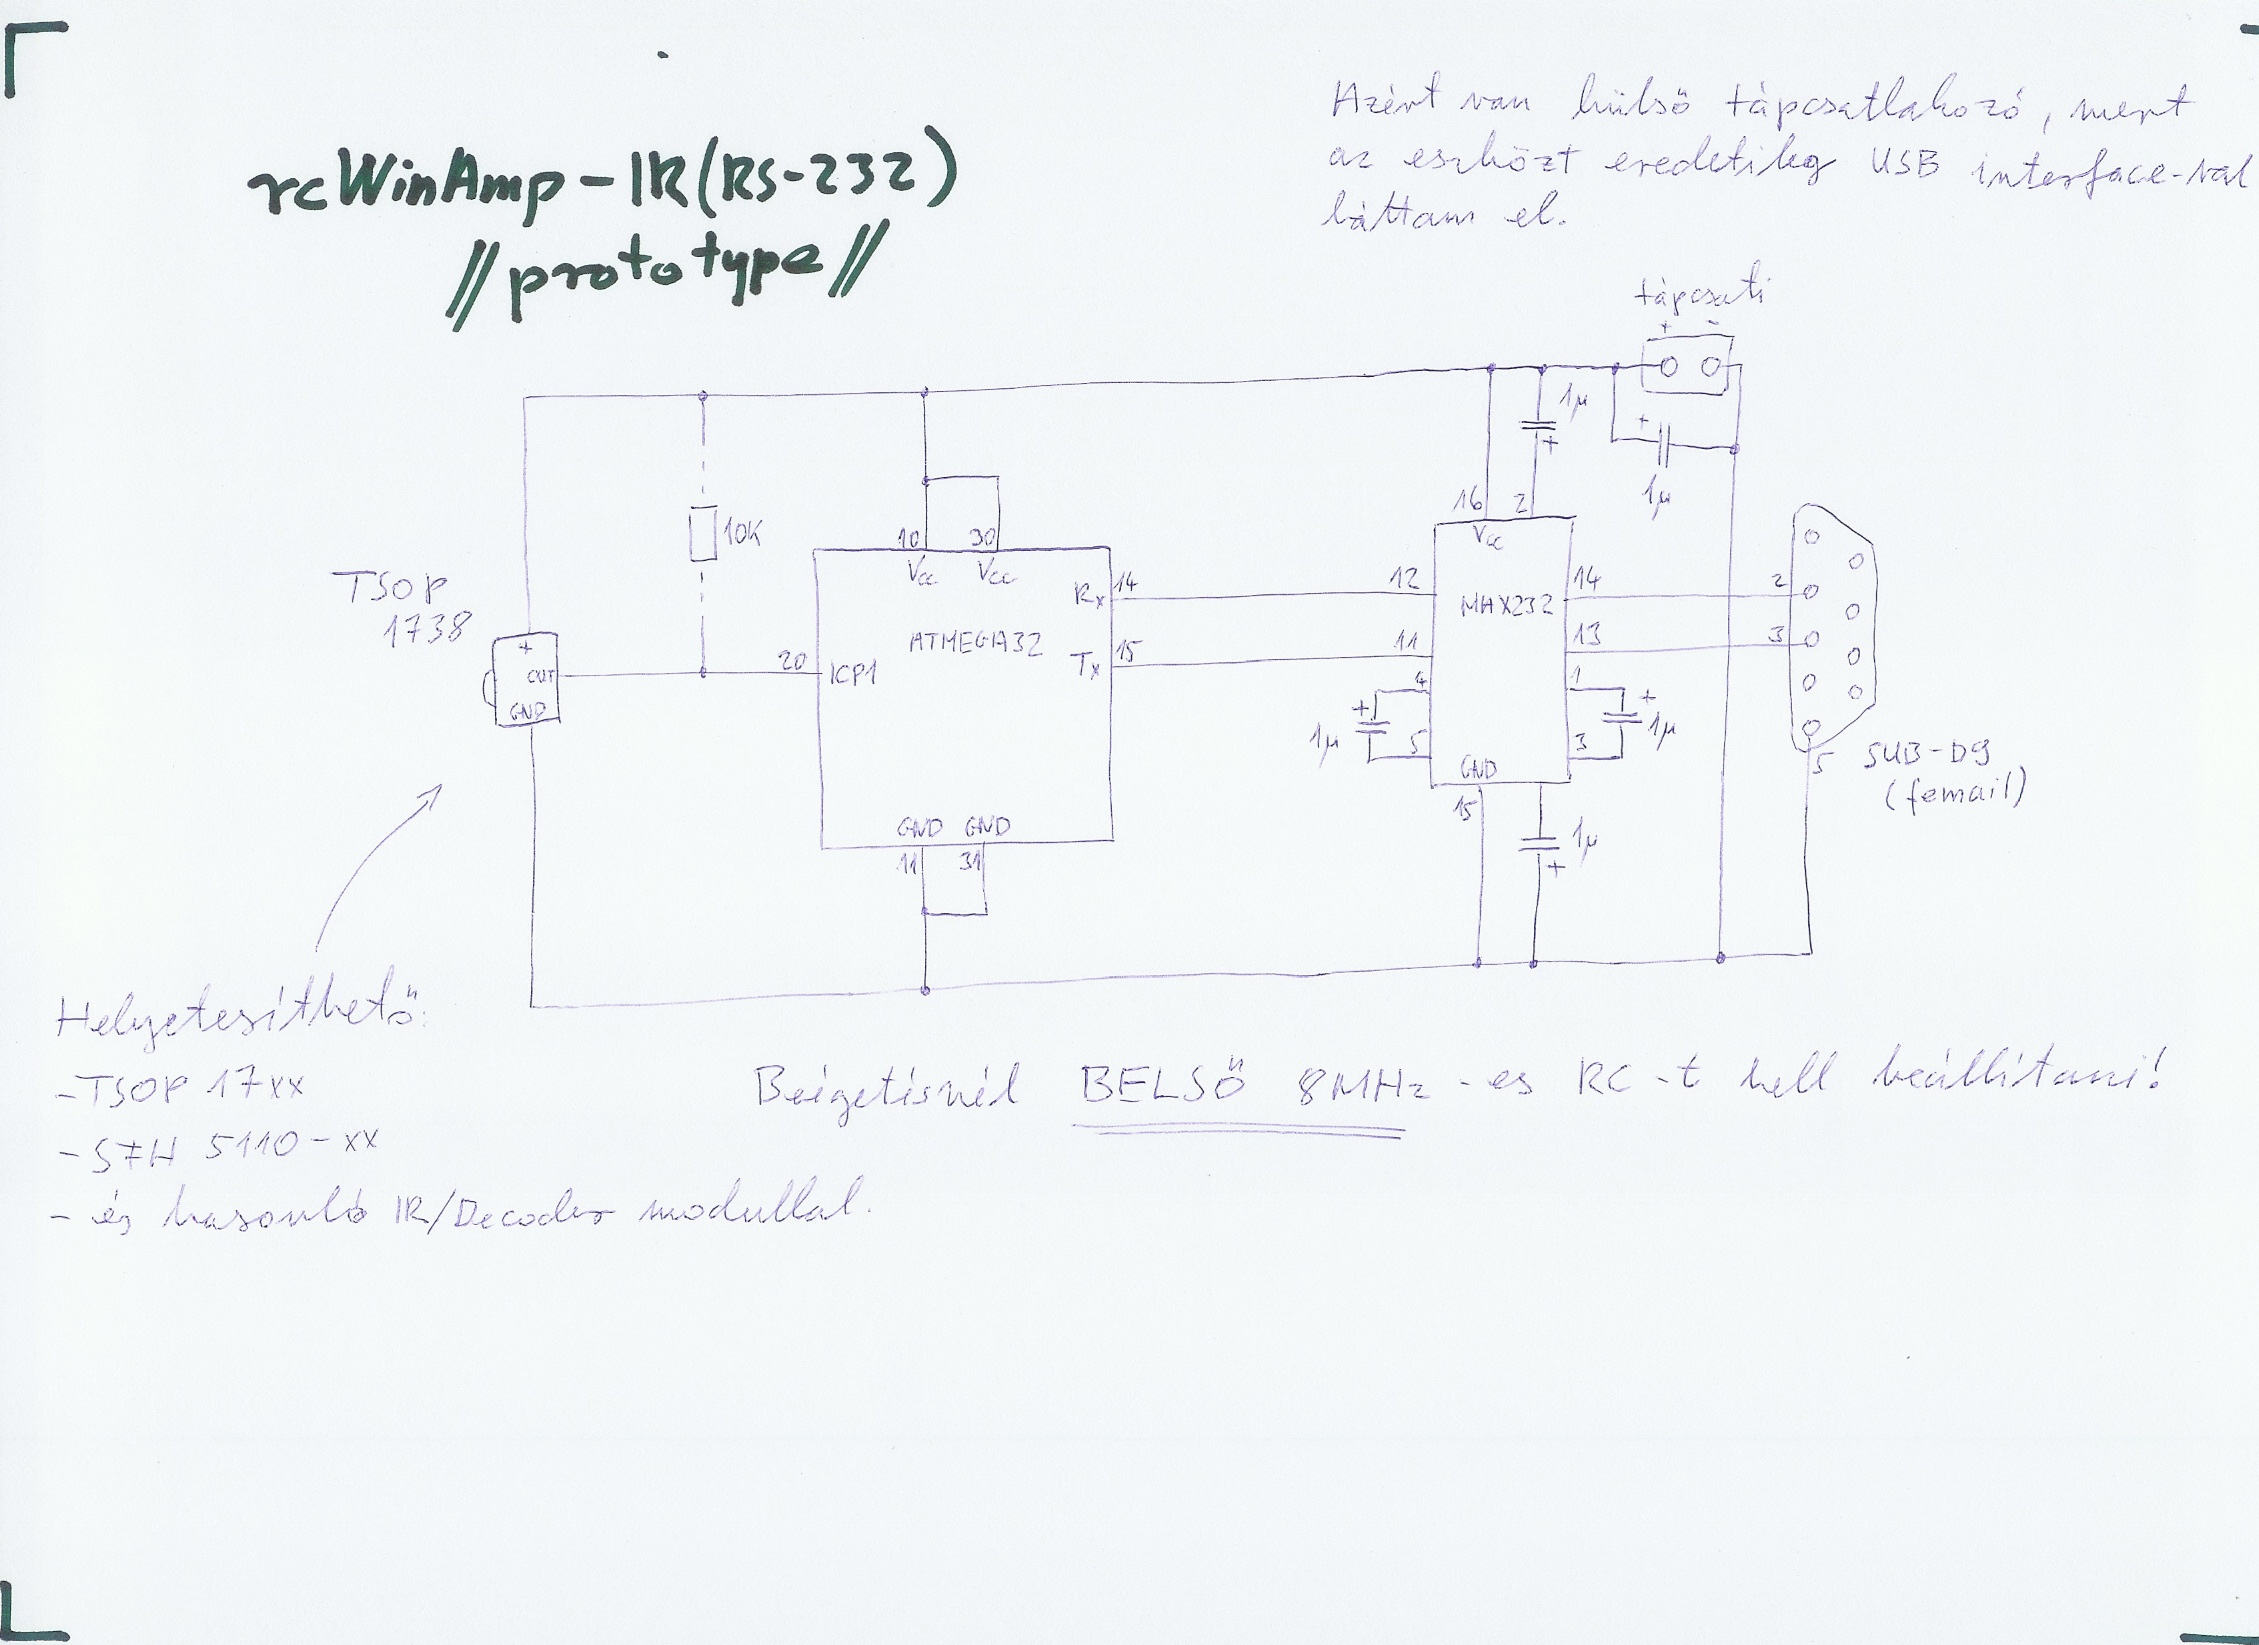 rcWinAmp-IR(RS-232)
//prototype//
Azért van külső tápcsatlakozó, mert
az eszközt eredetileg USB interface-val
láttam el.
tápcsati
+ -
1µ
+
+
1µ
16 2
Vcc
10K
10 30
Vcc Vcc
TSOP
1738
+
OUT
GND
20
ICP1
ATMEGA32
Rx 14
Tx 15
12
11
MAX232
14
13
2
3
4
5
+
1µ
1
3
+
1µ
GND
15
1µ
+
5
SUB-D9
(femail)
GND GND
11 31
Helyetesíthető:
-TSOP 17xx
-SFH 5110-xx
-és hasonló IR/Decoder modullal.
Beégetésnél BELSŐ 8MHz-es RC-t kell beállítani!